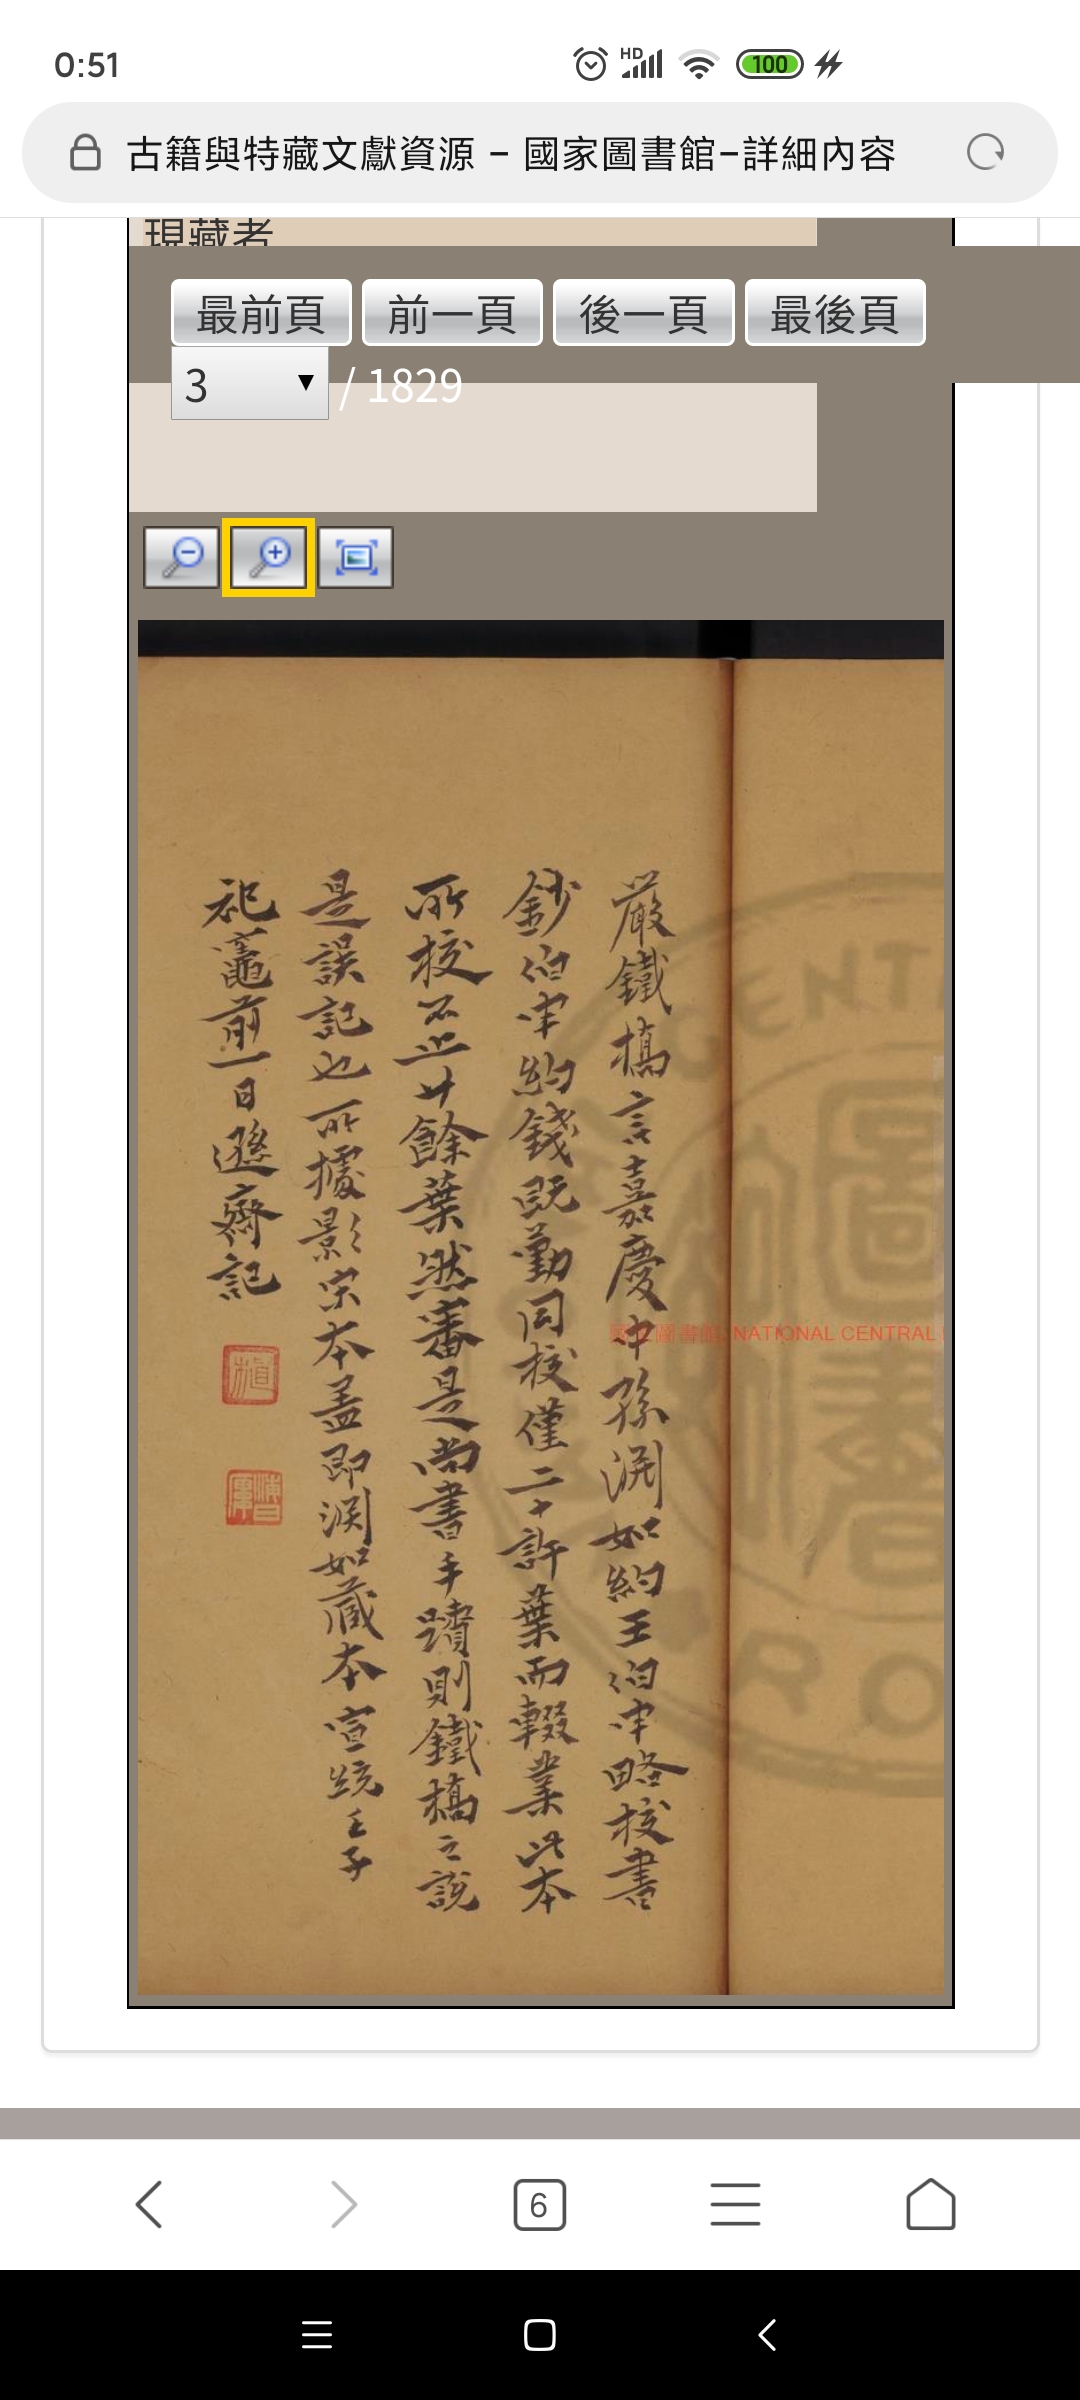 0:51
HD
100
古籍與特藏文獻資源 - 國家圖書館-詳細內容
現藏者
最前頁 前一頁 後一頁 最後頁
3 / 1829
嚴鐵橋言嘉慶中孫淵如約王伯申略校書
鈔伯申約錢既勤同校僅二十許葉而輟業此本
所校不止廿餘葉然審是尚書手蹟則鐵橋之說
是誤記也所據影宋本蓋即淵如藏本宣統壬子
祀竈前一日遜齋記
NATIONAL CENTRAL
6